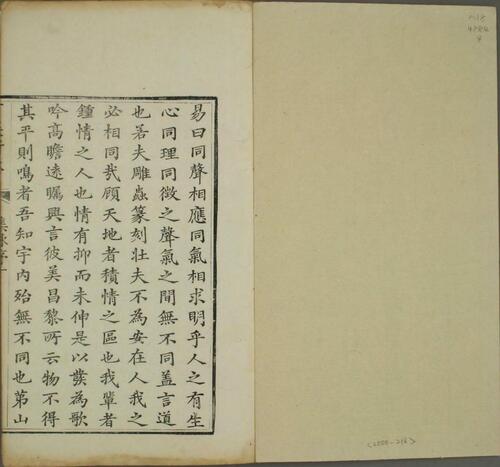 易曰同聲相應同氣相求明乎人之有生
心同理同徵之聲氣之間無不同蓋言道
也若夫雕蟲篆刻壯夫不為安在人我之
必相同哉顧天地者積情之區也我輩者
鍾情之人也情有抑而未伸是以發為歌
吟高瞻遠矚興言彼美昌黎所云物不得
其平則鳴者吾知宇内殆無不同也第山